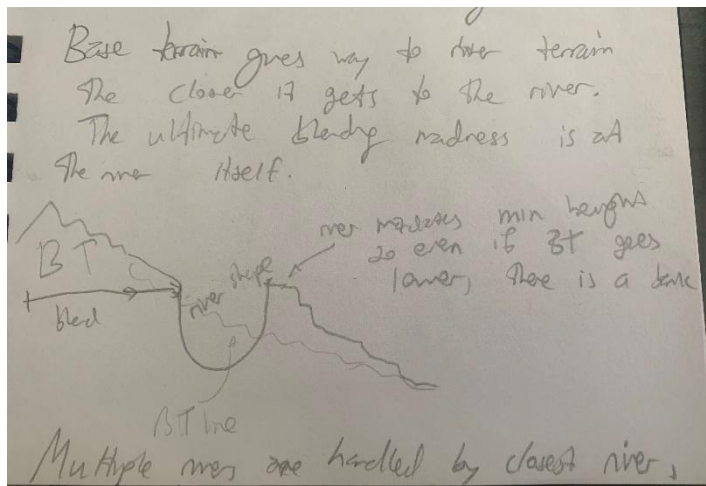 Base terrain gives way to river terrain
the closer it gets to the river.
The ultimate blending madness is at
the river itself.
river mandates min heights
so even if BT goes
lower, there is a bank
BT
river shape
blend
BT line
Multiple rivers are handled by closest river,